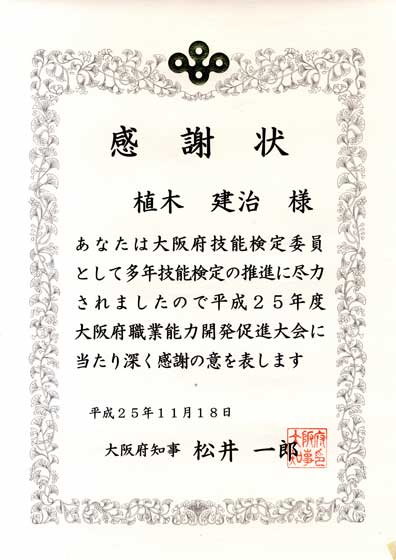 感謝状
植木 建治 様
あなたは大阪府技能検定委員
として多年技能検定の推進に尽力
されましたので平成２５年度
大阪府職業能力開発促進大会に
当たり深く感謝の意を表します
平成２５年１１月１８日
大阪府知事 松井 一郎
大阪府知事印